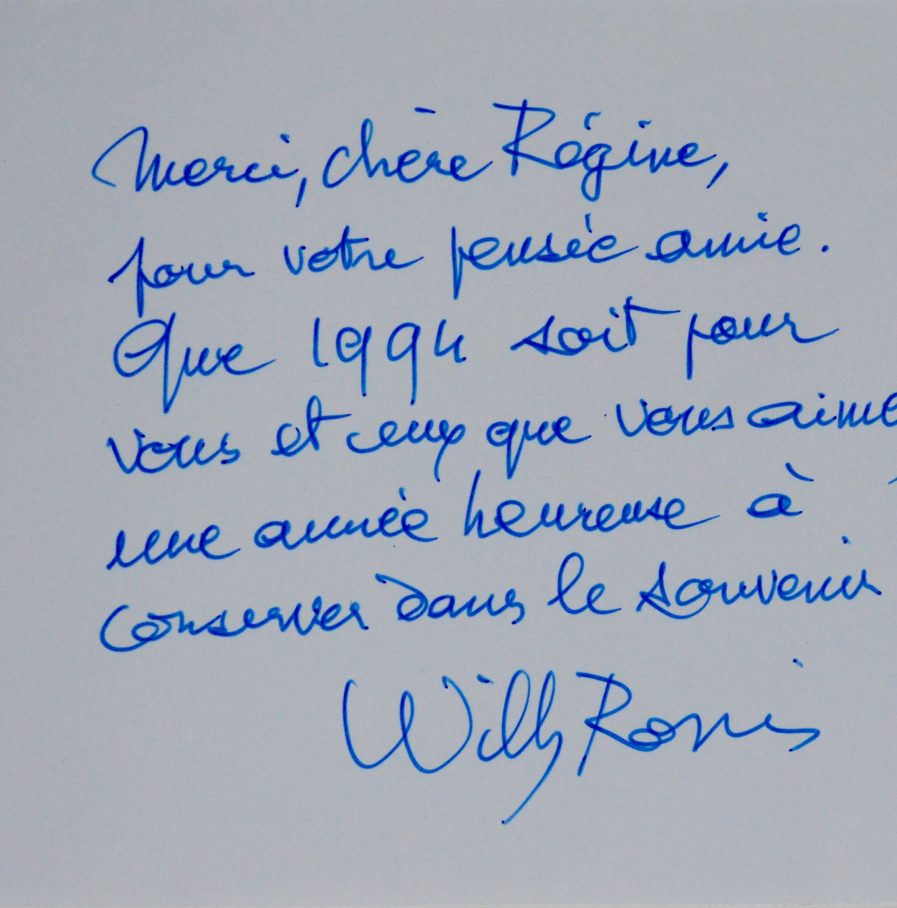 Merci, chère Régine,
pour votre pensée amie.
Que 1994 soit pour
vous et ceux que vous aime
une année heureuse à
conserver dans le souvenir
Willy Ronis